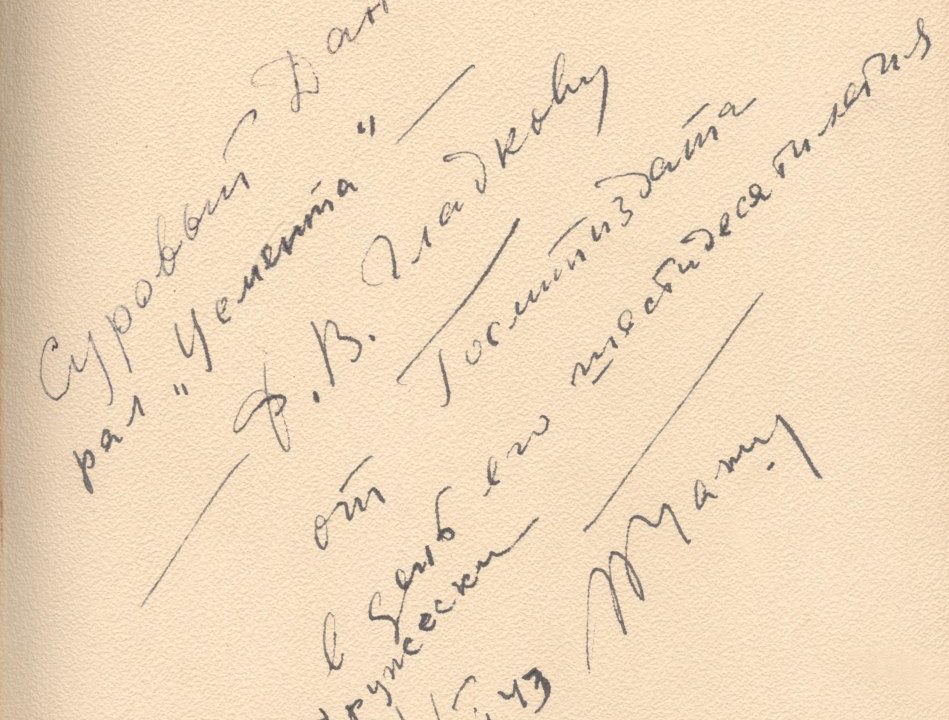 Суровый Дан
рал "Цемента" —
— Ф. В. Гладкову
от Гослитиздата
в день его шестидесятилетия
дружески —
43